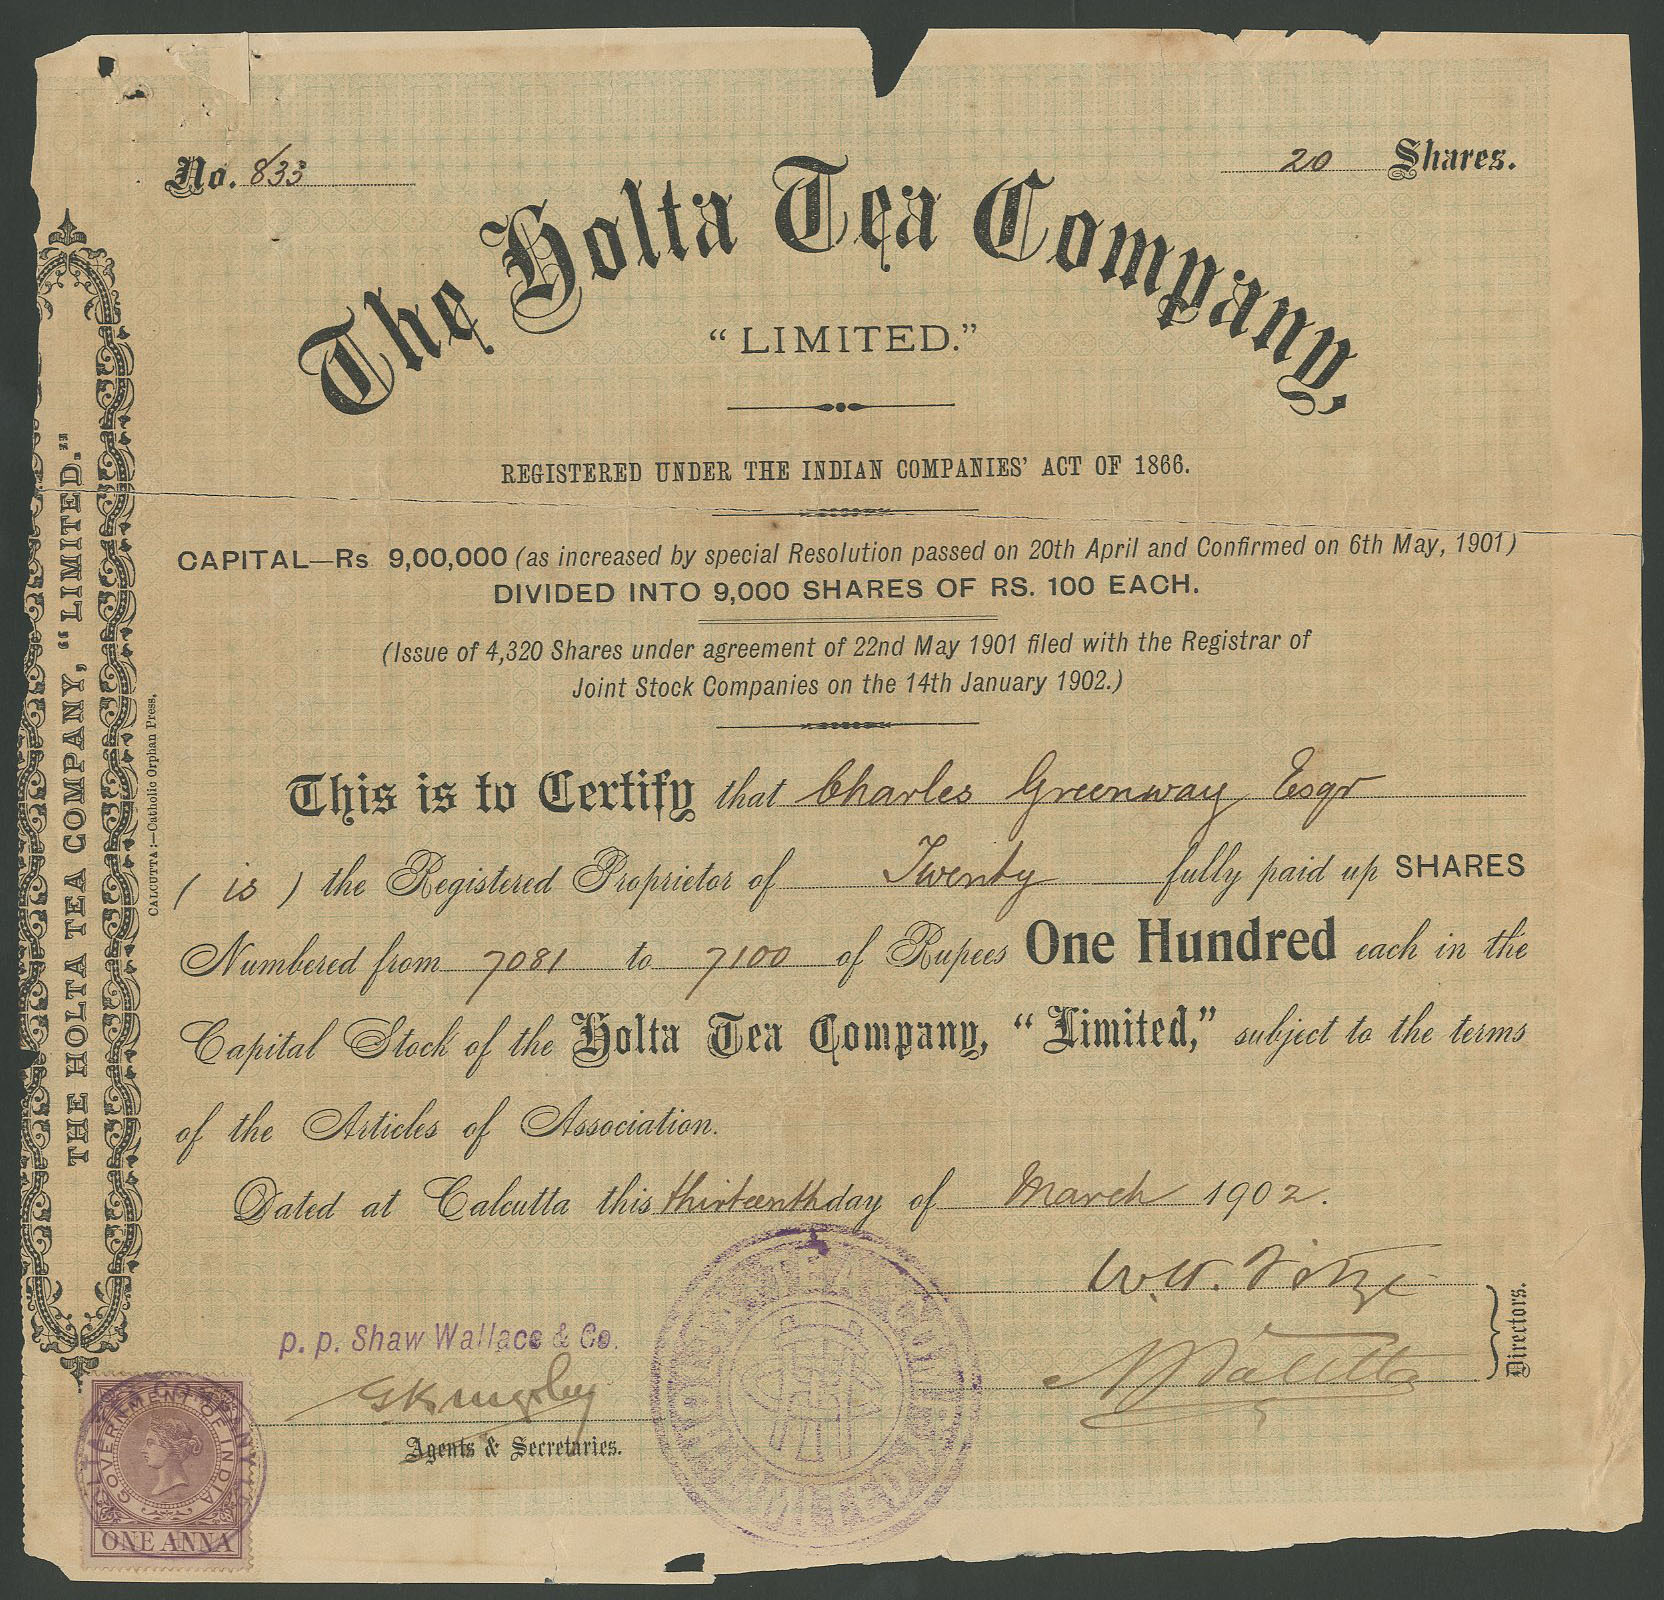 No. 833
20 Shares.
The Holta Tea Company,
"LIMITED."
REGISTERED UNDER THE INDIAN COMPANIES' ACT OF 1866.
CAPITAL—Rs 9,00,000 (as increased by special Resolution passed on 20th April and Confirmed on 6th May, 1901)
DIVIDED INTO 9,000 SHARES OF RS. 100 EACH.
(Issue of 4,320 Shares under agreement of 22nd May 1901 filed with the Registrar of
Joint Stock Companies on the 14th January 1902.)
This is to Certify that Charles Greenway Esqr
( is ) the Registered Proprietor of Twenty fully paid up SHARES
Numbered from 7081 to 7100 of Rupees One Hundred each in the
Capital Stock of the Holta Tea Company, "Limited," subject to the terms
of the Articles of Association.
Dated at Calcutta this thirteenth day of March 1902.
W.H.
Directors.
p. p. Shaw Wallace & Co.
Agents & Secretaries.
GOVERNMENT OF INDIA
ONE ANNA
THE HOLTA TEA COMPANY, "LIMITED."
CALCUTTA:—Catholic Orphan Press.